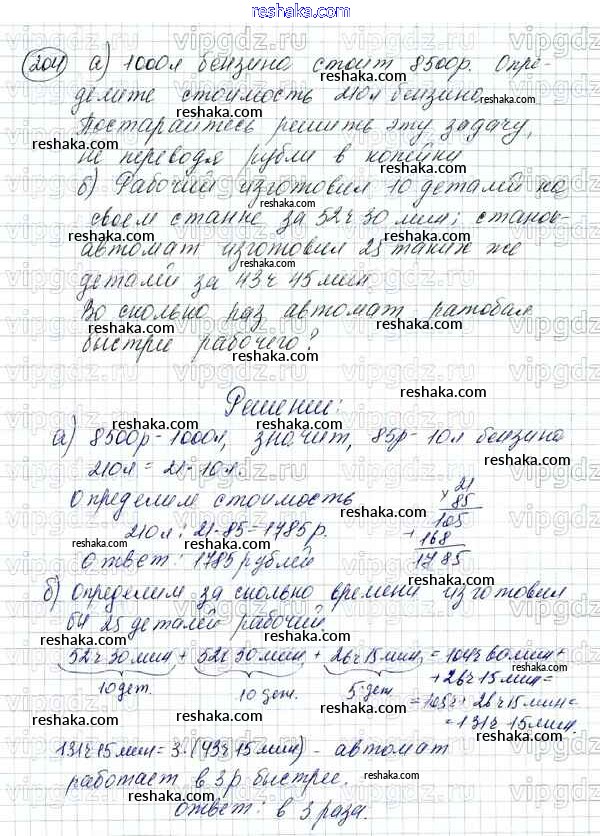 reshaka.com
204 а) 1000л бензина стоит 8500р. Опре-
делите стоимость 210л бензина.
Постарайтесь решить эту задачу,
не переводя рубли в копейки
б) Рабочий изготовил 10 деталей на
своем станке за 52ч 30 мин; станок-
автомат изготовил 25 таких же
деталей за 43ч 45мин.
Во сколько раз автомат работал
быстрее рабочего?
Решение:
а) 8500р - 1000л, значит, 85р - 10л бензина
210л = 21·10л.
Определим стоимость
210л: 21·85=1785р.
Ответ: 1785 рублей
21
× 85
105
+ 168
1785
б) Определим за сколько времени изготовил
бы 25 деталей рабочий
52ч 30мин + 52ч 30мин + 26ч 15мин = 104ч 60мин +
10дет. 10 дет. 5 дет.
+ 26ч 15мин =
= 105ч + 26ч 15мин =
= 131ч 15мин.
131ч 15мин = 3·(43ч 15мин) - автомат
работает в 3р быстрее.
Ответ: в 3 раза.